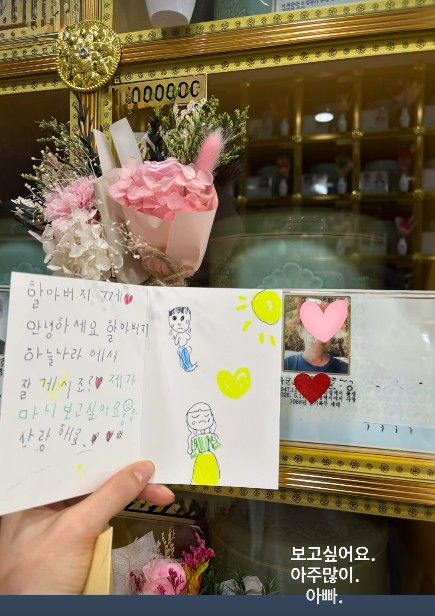 할아버지 께
안녕하세요 할아버지
하늘나라 에서
잘 계시조? 제가
마니 보고싶어요
사랑 해요
보고싶어요.
아주많이.
아빠.